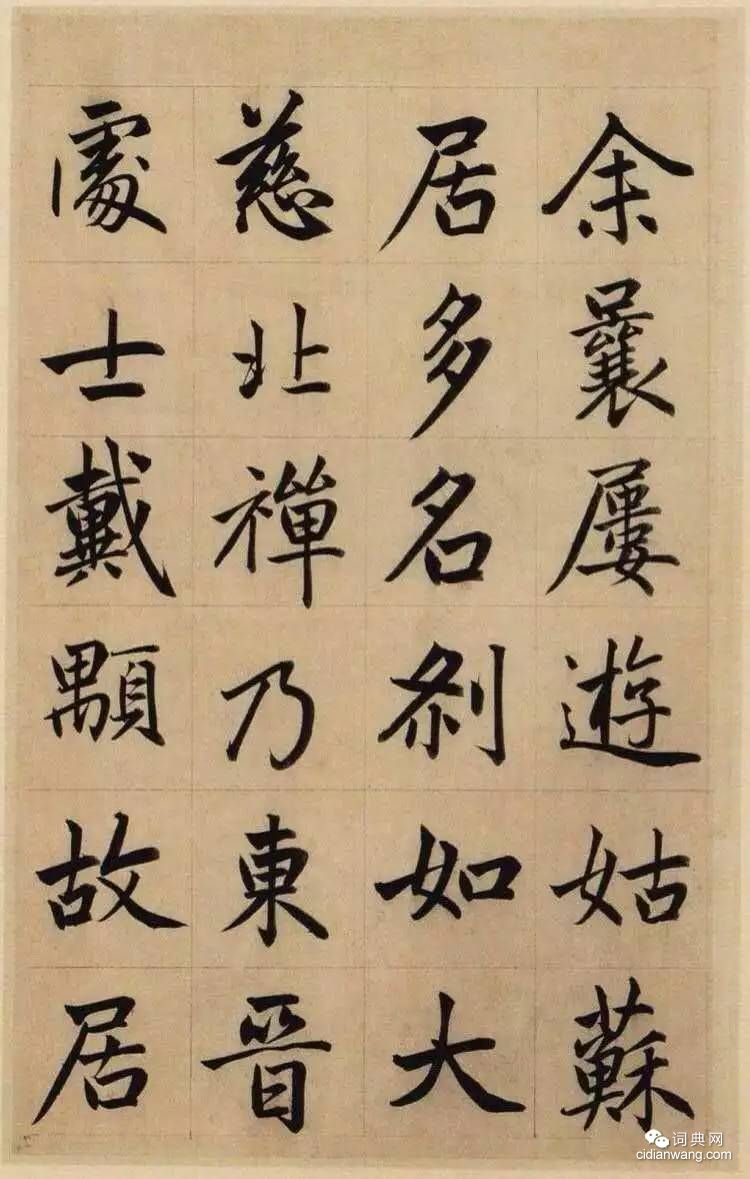 余曩屡遊姑蘇
居多名刹如大
慈北禪乃東晉
處士戴顒故居
词典网
cidianwang.com